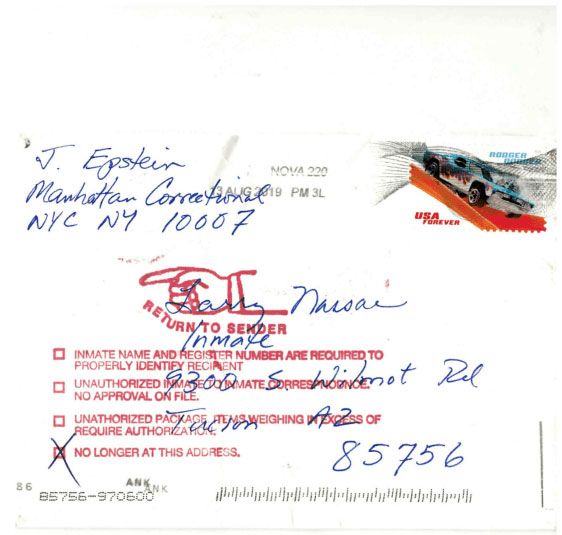 J. Epstein
Manhattan Correctional
NYC NY 10007
NOVA 220
13 AUG 2019 PM 3L
RODGER DODGER
USA
FOREVER
Larry Nassar
RETURN TO SENDER
Inmate
INMATE NAME AND REGISTER NUMBER ARE REQUIRED TO
PROPERLY IDENTIFY RECIPIENT
9300 S. Wilmot Rd
UNAUTHORIZED INMATE TO INMATE CORRESPONDENCE.
NO APPROVAL ON FILE.
Tucson AZ
UNATHORIZED PACKAGE, ITEMS WEIGHING IN EXCESS OF
REQUIRE AUTHORIZATION.
NO LONGER AT THIS ADDRESS.
85756
86
ANK
ANK
85756-970600